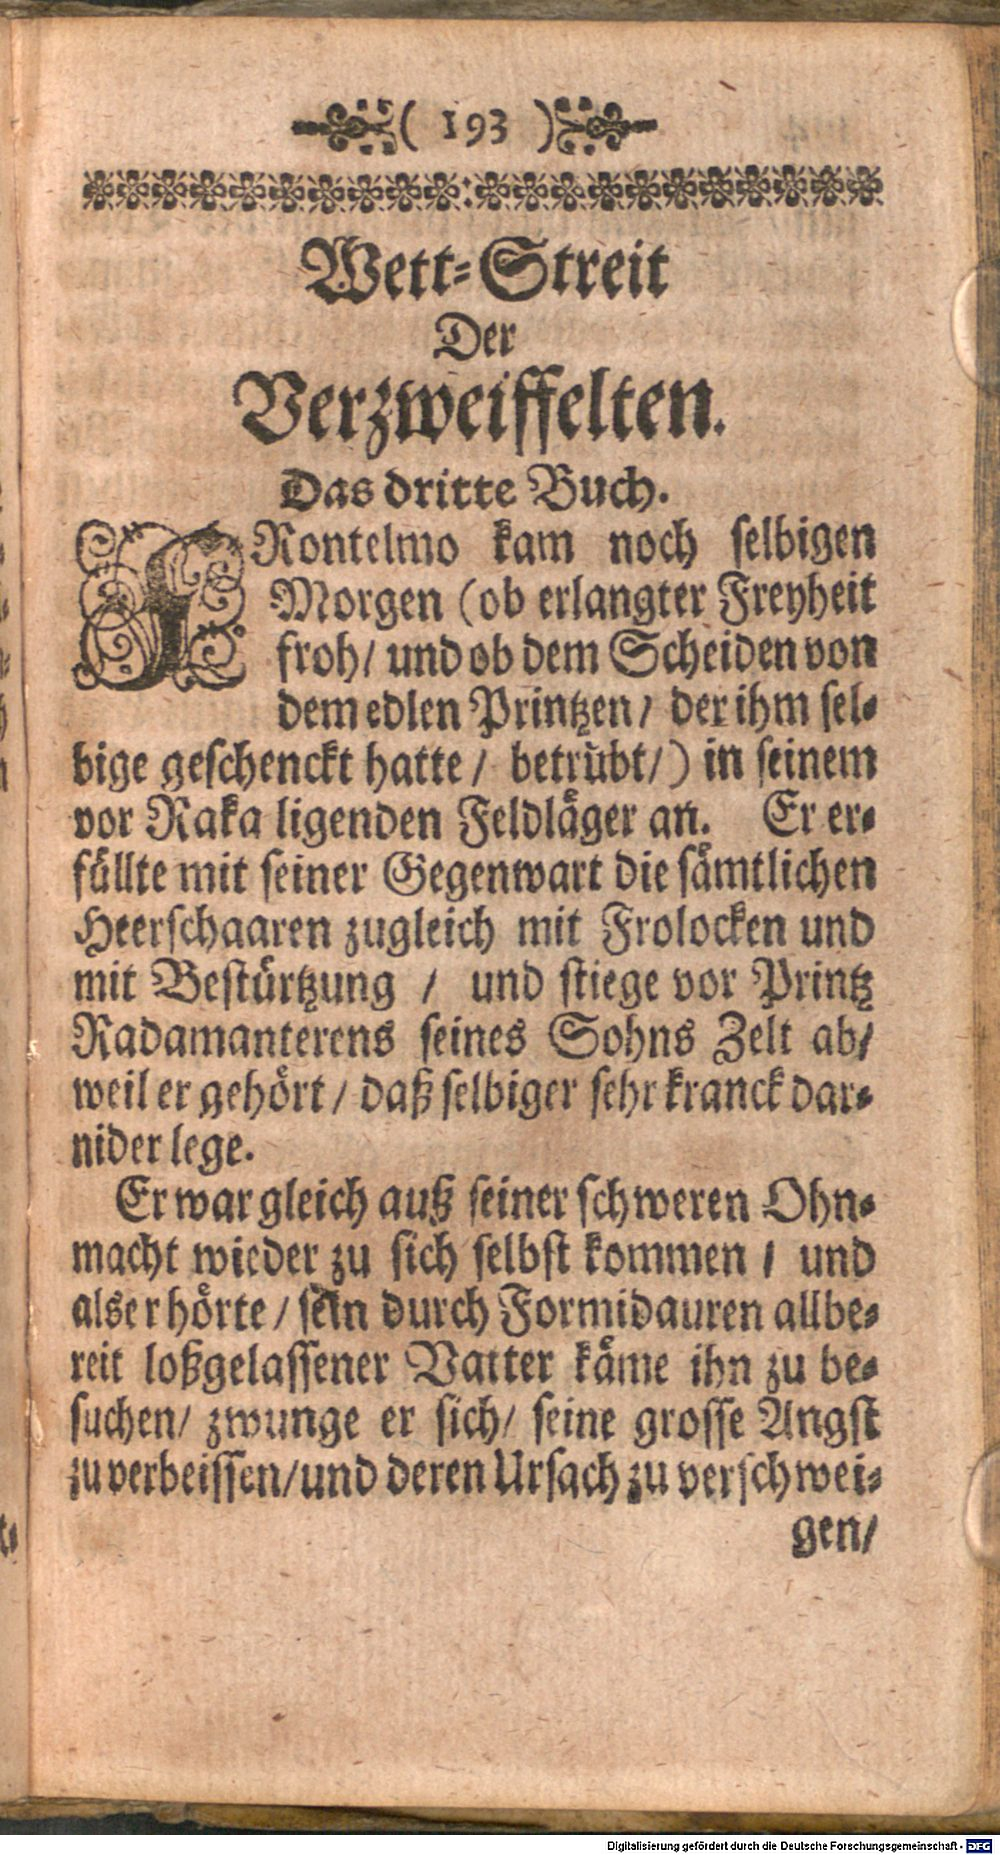 ( 193 )
Wett-Streit
Der
Verzweiffelten.
Das dritte Buch.
FRontelmo kam noch selbigen
Morgen (ob erlangter Freyheit
froh/ und ob dem Scheiden von
dem edlen Printzen/ der ihm sel-
bige geschenckt hatte/ betrübt/) in seinem
vor Raka ligenden Feldläger an. Er er-
füllte mit seiner Gegenwart die sämtlichen
Heerschaaren zugleich mit Frolocken und
mit Bestürtzung / und stiege vor Printz
Radamanterens seines Sohns Zelt ab/
weil er gehört/ daß selbiger sehr kranck dar-
nider lege.
Er war gleich auß seiner schweren Ohn-
macht wieder zu sich selbst kommen / und
als er hörte/ sein durch Formidauren allbe-
reit loßgelassener Vatter käme ihn zu be-
suchen/ zwunge er sich/ seine grosse Angst
zu verbeissen/und deren Ursach zu verschwei-
gen/
Digitalisierung gefördert durch die Deutsche Forschungsgemeinschaft - DFG